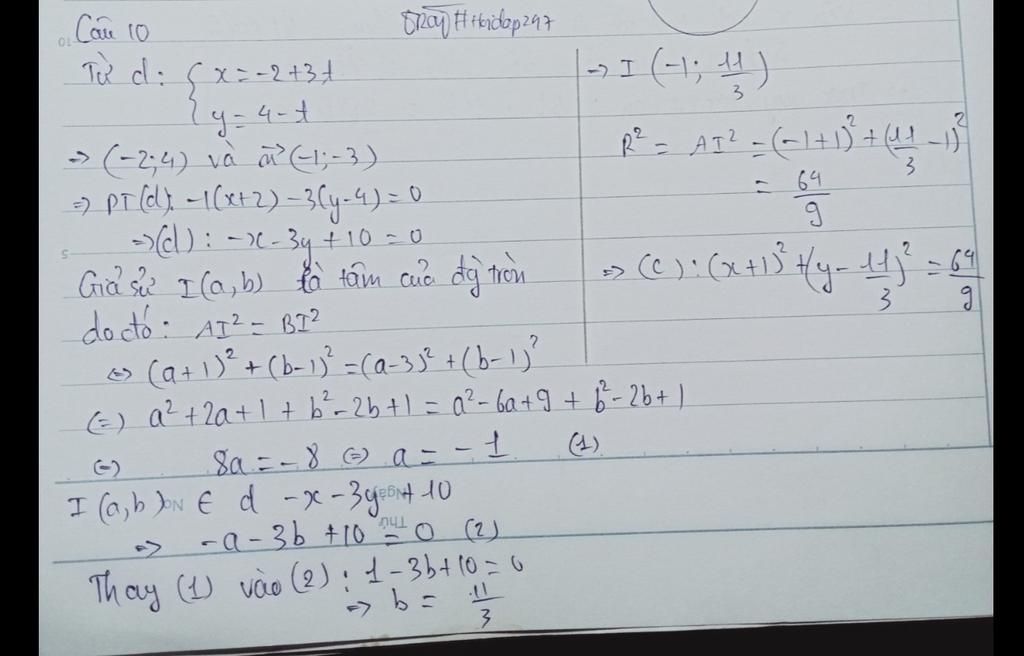 Câu 10
Từ d: { x = -2+3t
y = 4-t
=> (-2;4) và a→(-1;-3)
=> PT(d): -1(x+2) -3(y-4) = 0
=>(d): -x - 3y + 10 = 0
Giả sử I(a,b) là tâm của đg tròn
do đó: AI² = BI²
<=> (a+1)² + (b-1)² = (a-3)² + (b-1)²
(=) a² + 2a + 1 + b² - 2b + 1 = a² - 6a + 9 + b² - 2b + 1
(=) 8a = -8 (=) a = -1 (1)
I(a,b) ∈ d -x - 3y + 10
=> -a - 3b + 10 = 0 (2)
Thay (1) vào (2): 1 - 3b + 10 = 0
=> b = 11/3
=> I (-1; 11/3)
R² = AI² = (-1+1)² + (11/3 - 1)²
= 64/9
=> (C): (x+1)² + (y - 11/3)² = 64/9